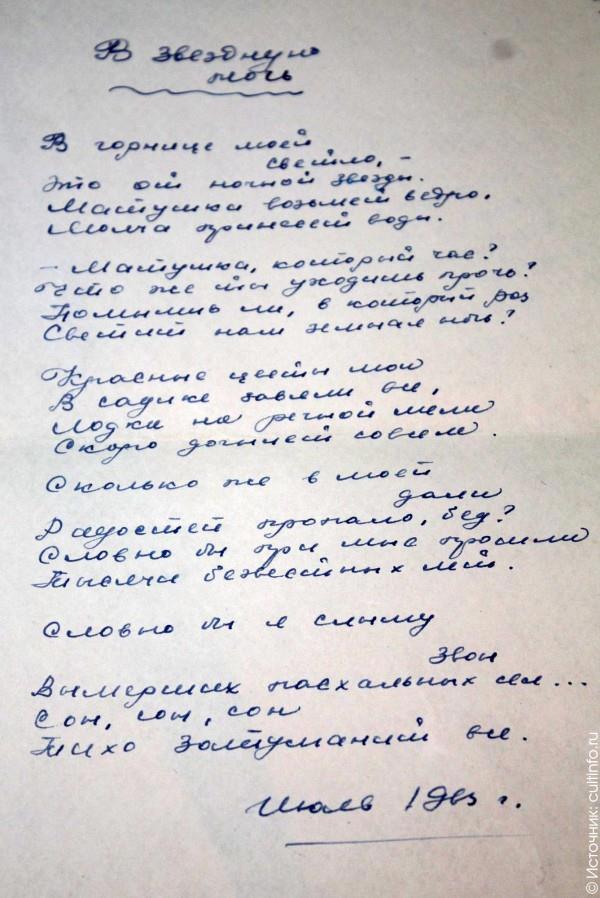 В звездную
ночь
В горнице моей
светло, –
Это от ночной звезды.
Матушка возьмет ведро,
Молча принесет воды.
– Матушка, который час?
Что же ты уходишь прочь?
Помнишь ли, в который раз
Светит нам земная ночь?
Красные цветы мои
В садике завяли все,
Лодка на речной мели
Скоро догниет совсем.
Сколько же в моей
дали
Радостей пропало, бед?
Словно бы при мне прошли
Тысячи безвестных лет.
Словно бы я слышу
звон
Вымерших пасхальных сел...
Сон, сон, сон
Тихо затуманит все.
Июль 1963 г.
© Источник: cultinfo.ru